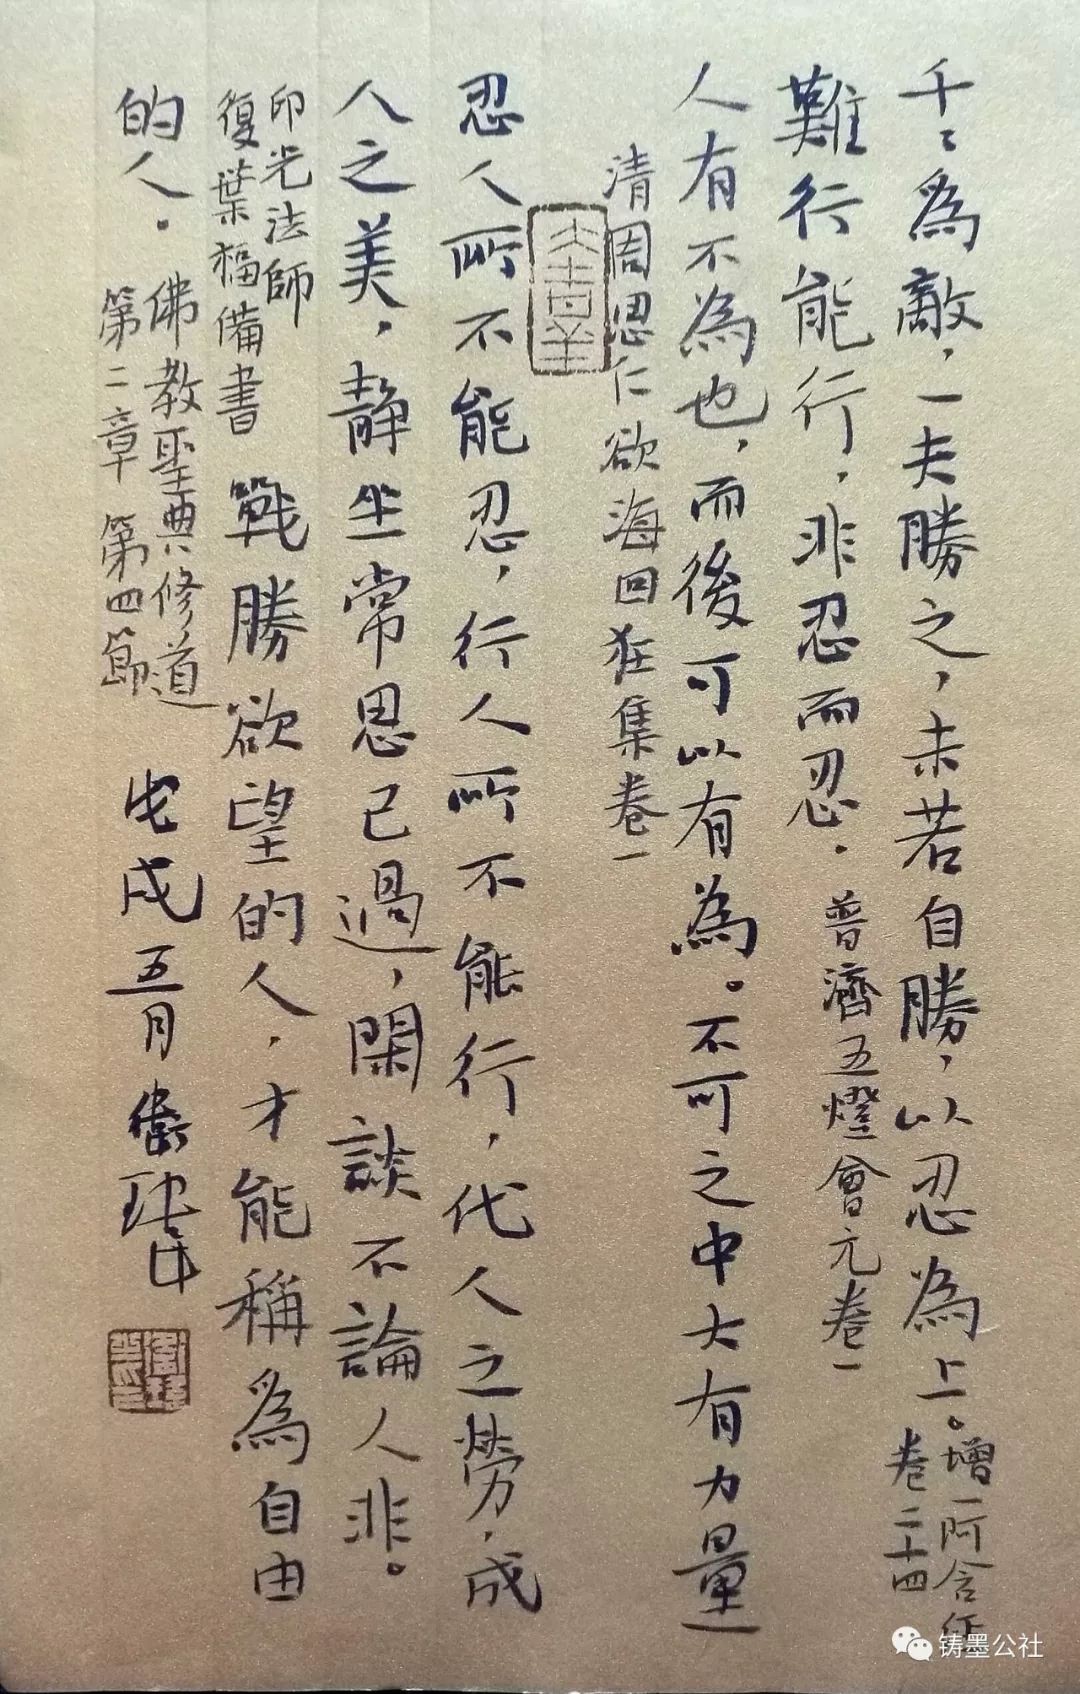 千〻為敵，一夫勝之，未若自勝，以忍為上。增一阿含經
卷二十四
難行能行，非忍而忍。普濟五燈會元卷一
人有不為也，而後可以有為。不可之中大有力量
清周思仁欲海回狂集卷一
忍人所不能忍，行人所不能行，代人之勞，成
人之美，靜坐常思己過，閑談不論人非。
印光法師
復葉福備書
戰勝欲望的人，才能稱為自由
的人。佛教聖典修道
第二章 第四節
戊戌五月
铸墨公社